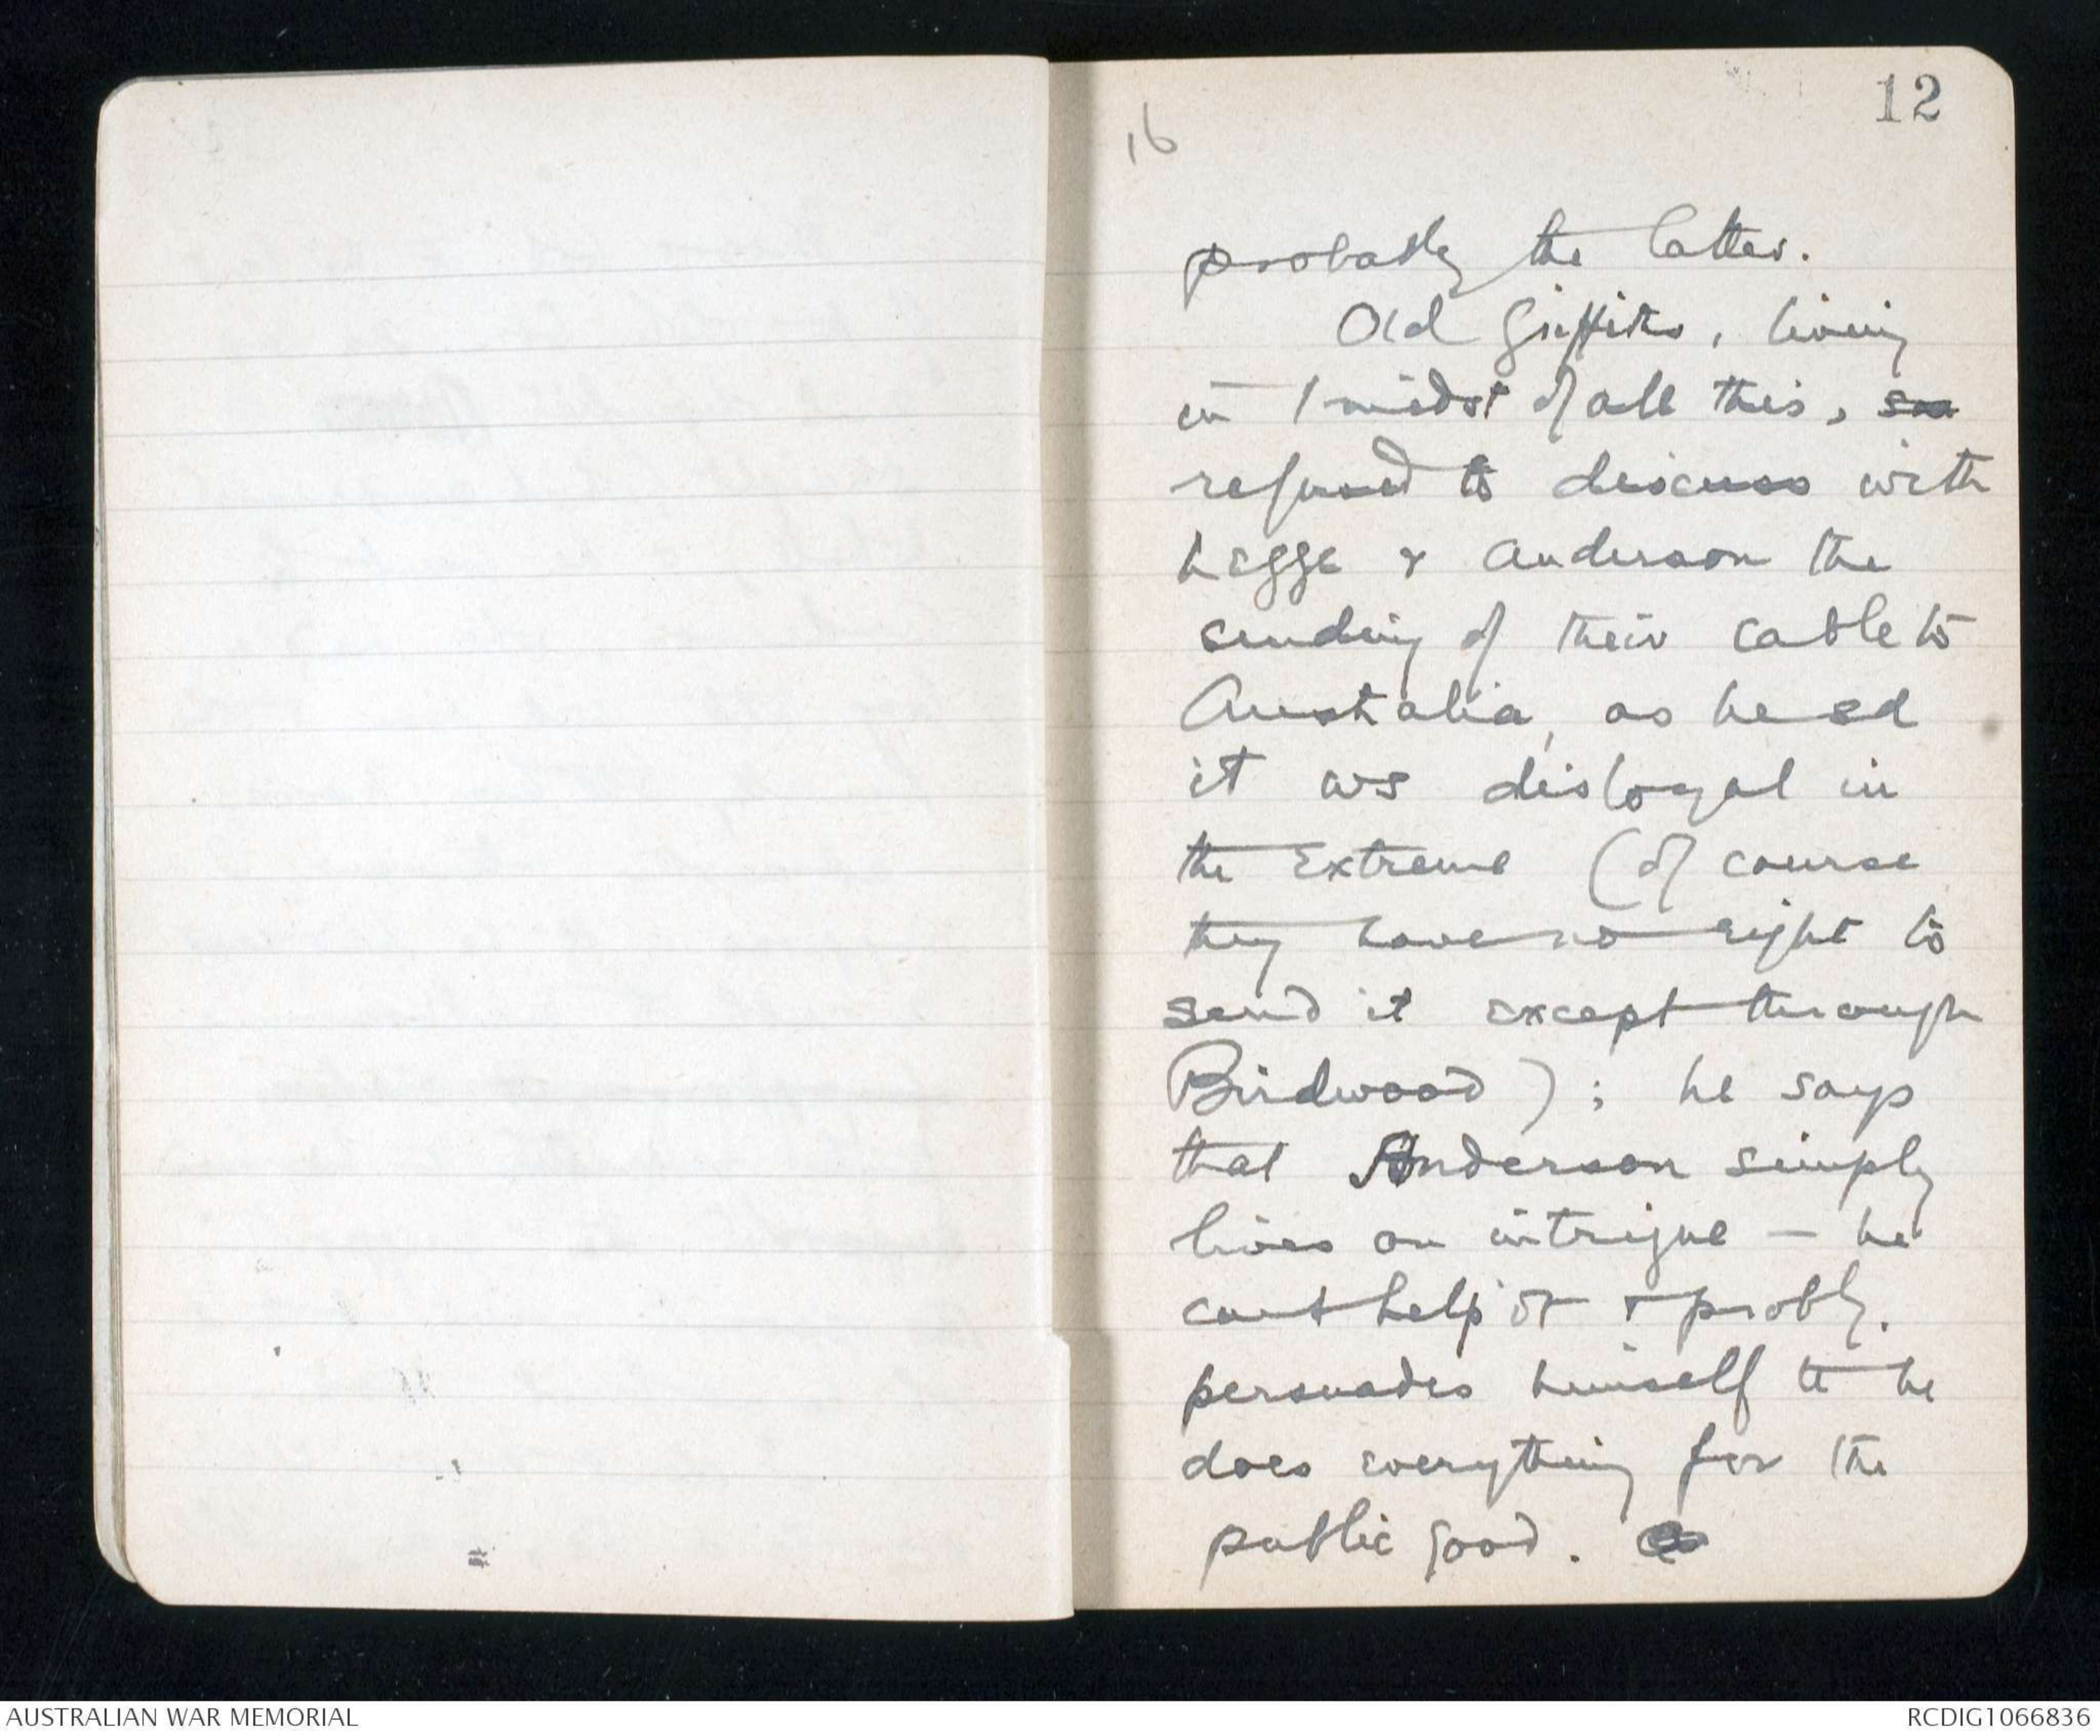 12
16
probably the latter.
Old Griffiths, living
in / midst of all this,
refused to discuss with
Legge & Anderson the
sending of their cable to
Australia, as he sd
it ws disloyal in
the extreme (of course
they have no right to
send it except through
Birdwood); he says
that Anderson simply
lives on intrigue - he
cant help it & probly.
persuades himself tt he
does everything for the
public good.
AUSTRALIAN WAR MEMORIAL
RCDIG1066836